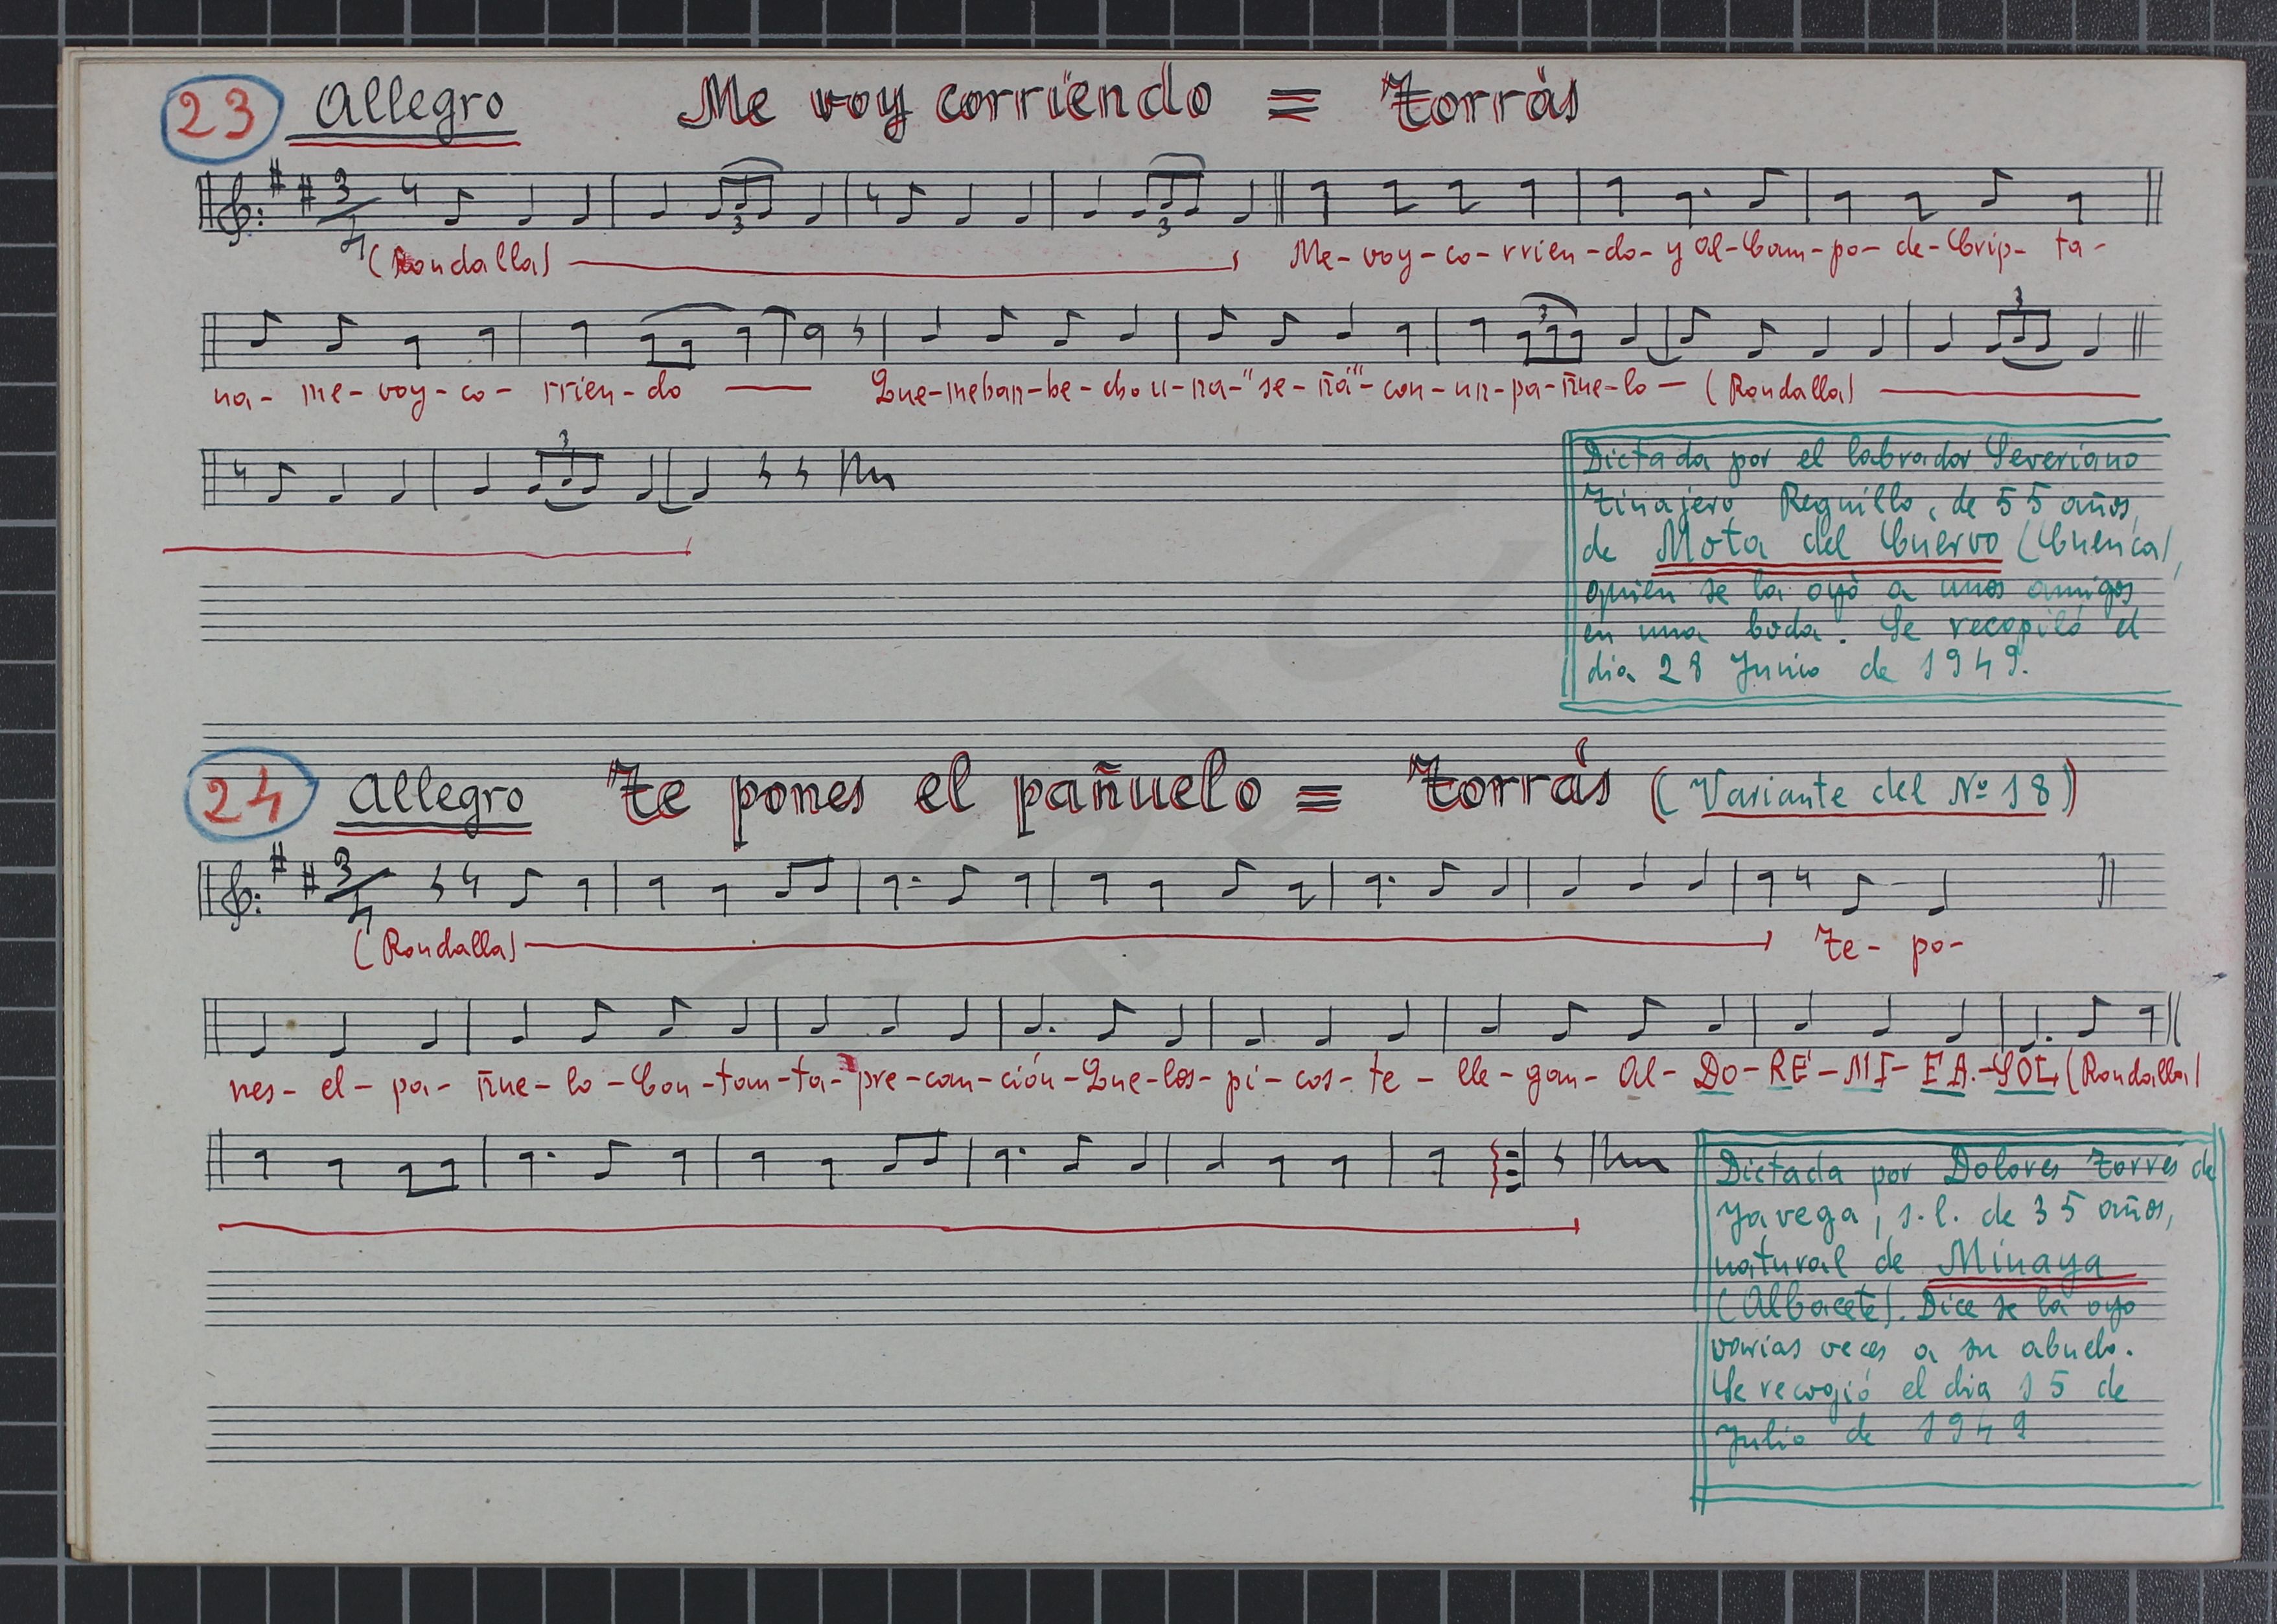 23 Allegro Me voy corriendo = Torrás
(Rondalla) Me- voy - co - rrien - do - y al - Cam - po - de - Crip - ta -
na - me - voy - co - rrien - do — Que - mehan - he - cho u - na - "se - ñá" - con - un - pa - ñue - lo — (Rondalla)
Dictada por el labrador Severiano
Tinajero Requillo, de 55 años,
de Mota del Cuervo (Cuenca),
quien se la oyó a unos amigos
en una boda. Se recopiló el
dia 28 Junio de 1949.
24 Allegro Te pones el pañuelo = Torrás (Variante del Nº 18)
(Rondalla) Te - po -
nes - el - pa - ñue - lo - Con - tan - ta - pre - cau - ción - Que - los - pi - cos - te - lle - gan - Al - DO - RE - MI - FA - SOL (Rondalla)
Dictada por Dolores Torres de
Yavega, s.l. de 35 años,
natural de Minaya
(Albacete). Dice se la oyo
varias veces a su abuelo.
Se recogió el dia 15 de
Julio de 1949